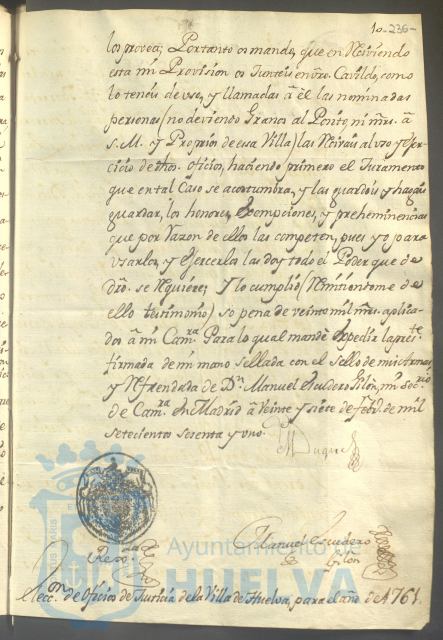 10.-236-
los provea; Portanto os mando, que en Reiviendo
esta mi Provision os Junteis en vro. Cavildo, como
lo teneis de uso, y llamadas á él las nominadas
personas (no deviendo Granos al Posito, ni mrs. á
S. M. y Proprios de esa Villa) las Reivais al uso y exer-
cicio de dhos. oficios, haciendo primero el Juramento
que en tal Caso se acostumbra, y las guardeis y hagais
guardar, los honores, Exempciones, y preheminencias
que por razon de ellos las competen, pues yo para
usarlos, y Exercerlos las doy todo el Poder que de
dro. se Requiere; Y lo cumplid (Remitiendome de
ello testimonio) so pena de veinte mil mrs. aplica-
dos á mi Camra. Para lo qual mandè Expedir la preste.
firmada de mi mano sellada con el sello de mis Armas
y Refrendada de Dn. Manuel Escudero Pilón, mi Secrio.
de Camra. En Madrid á Veinte y siete de febro. de mil
setecientos sesenta y uno.
El Duque
Manuel Escudero
y Pilon
Ayuntamiento de
HUELVA
Eleccon. de oficios de Justicia de la Villa de Huelva, para el año de 1761.